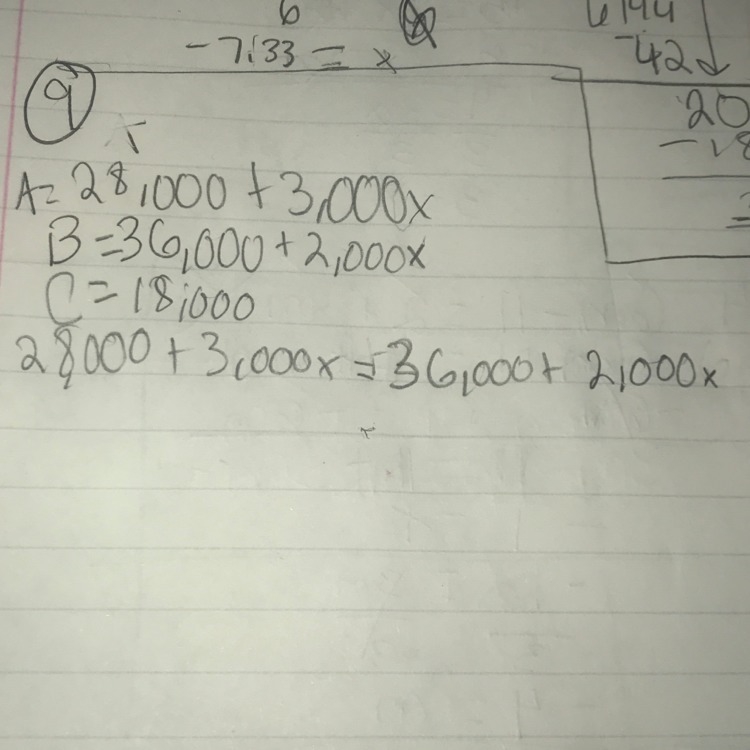 6
-7.33 = x
6 144
-42
20
-18
9
A= 28,000 + 3,000x
B = 36,000 + 2,000x
C = 18,000
28,000 + 3,000x = 36,000 + 2,000x